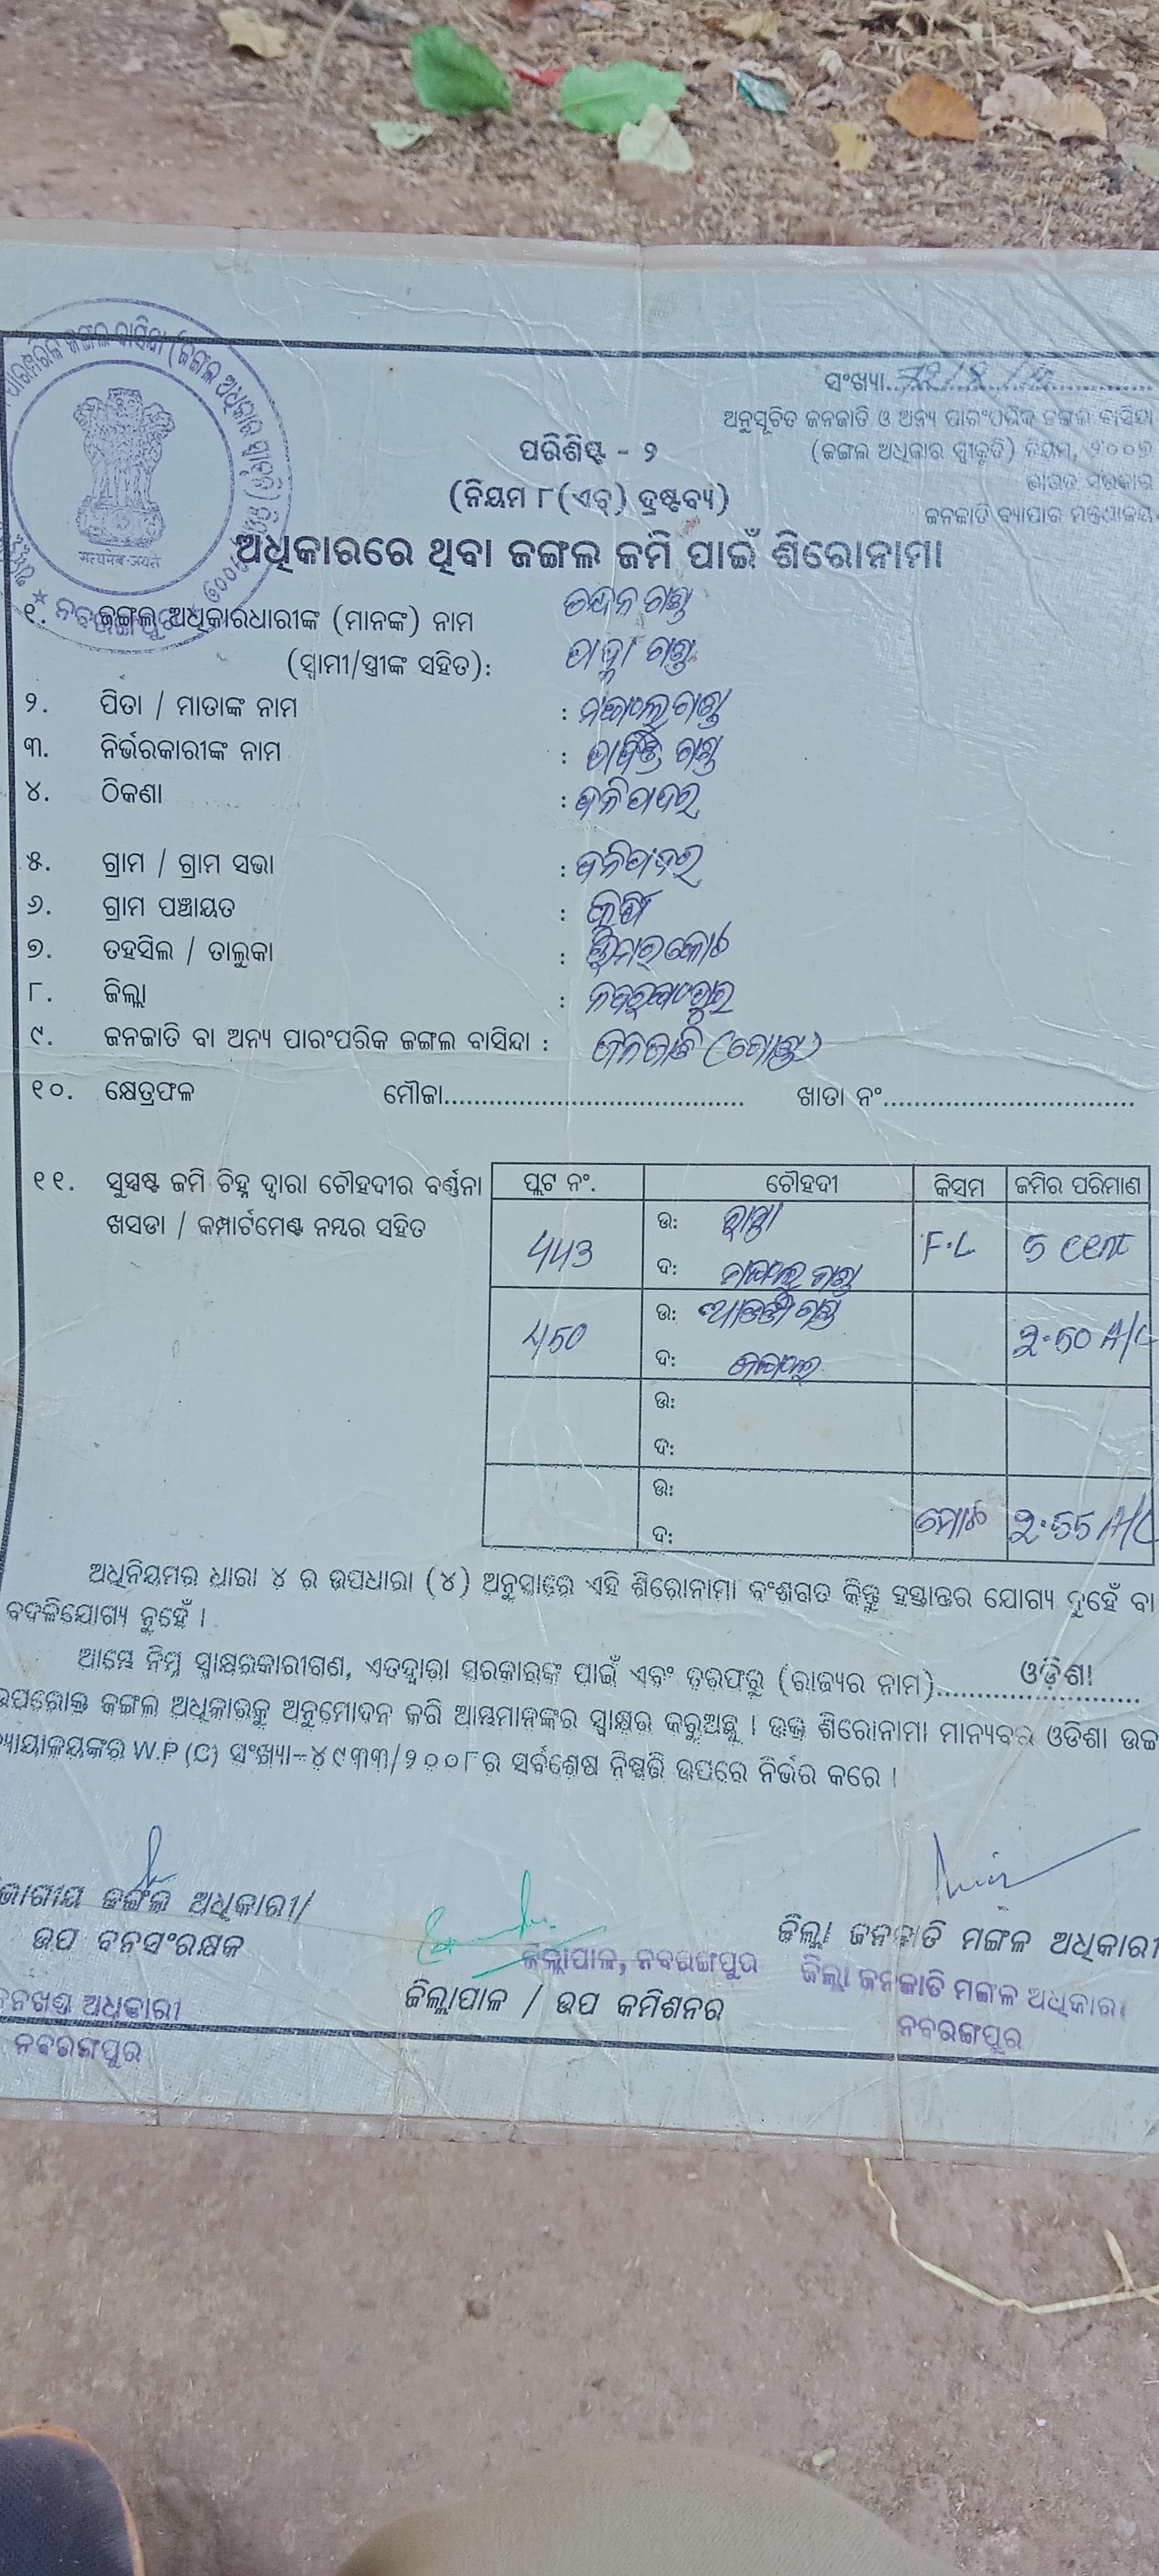 ପାରମ୍ପରିକ ଜଙ୍ଗଲ ବାସିନ୍ଦା (ଜଙ୍ଗଲ ଅଧିକାର
सत्यमेव जयते
ନବରଙ୍ଗପୁର
ସଂଖ୍ୟା
ଅନୁସୂଚିତ ଜନଜାତି ଓ ଅନ୍ୟ ପାରଂପରିକ ଜଙ୍ଗଲ ବାସିନ୍ଦା
(ଜଙ୍ଗଲ ଅଧିକାର ସ୍ୱୀକୃତି) ନିୟମ, ୨୦୦୭
ଭାରତ ସରକାର
ଜନଜାତି ବ୍ୟାପାର ମନ୍ତ୍ରଣାଳୟ
ପରିଶିଷ୍ଟ - ୨
(ନିୟମ ୮(ଏଚ୍) ଦ୍ରଷ୍ଟବ୍ୟ)
ଅଧିକାରରେ ଥିବା ଜଙ୍ଗଲ ଜମି ପାଇଁ ଶିରୋନାମା
୧. ଜଙ୍ଗଲ ଅଧିକାରଧାରୀଙ୍କ (ମାନଙ୍କ) ନାମ ଚନ୍ଦନ ଗଣ୍ଡ
(ସ୍ୱାମୀ/ସ୍ତ୍ରୀଙ୍କ ସହିତ): ଗଣ୍ଡ
୨. ପିତା / ମାତାଙ୍କ ନାମ : ଗଣ୍ଡ
୩. ନିର୍ଭରକାରୀଙ୍କ ନାମ : ଗଣ୍ଡ
୪. ଠିକଣା :
୫. ଗ୍ରାମ / ଗ୍ରାମ ସଭା :
୬. ଗ୍ରାମ ପଞ୍ଚାୟତ :
୭. ତହସିଲ / ତାଲୁକା : ଉମରକୋଟ
୮. ଜିଲ୍ଲା : ନବରଙ୍ଗପୁର
୯. ଜନଜାତି ବା ଅନ୍ୟ ପାରଂପରିକ ଜଙ୍ଗଲ ବାସିନ୍ଦା : ଜନଜାତି (ଗୋଣ୍ଡ)
୧୦. କ୍ଷେତ୍ରଫଳ ମୌଜା........................................ ଖାତା ନଂ.................................
୧୧. ସୁସ୍ପଷ୍ଟ ଜମି ଚିହ୍ନ ଦ୍ୱାରା ଚୌହଦୀର ବର୍ଣ୍ଣନା
ଖସଡା / କମ୍ପାର୍ଟମେଣ୍ଟ ନମ୍ବର ସହିତ
ପ୍ଲଟ ନଂ. ଚୌହଦୀ କିସମ ଜମିର ପରିମାଣ
443 ଉ: ରାସ୍ତା F.L 5 cent
ଦ: ଗଣ୍ଡ
450 ଉ: ଗଣ୍ଡ 2.50 A/C
ଦ:
ଉ:
ଦ:
ଉ:
ଦ: ମୋଟ 2.55 A/C
ଅଧିନିୟମର ଧାରା ୪ ର ଉପଧାରା (୪) ଅନୁସାରେ ଏହି ଶିରୋନାମା ବଂଶଗତ କିନ୍ତୁ ହସ୍ତାନ୍ତର ଯୋଗ୍ୟ ନୁହେଁ ବା
ବଦଳିଯୋଗ୍ୟ ନୁହେଁ ।
ଆମ୍ଭେ ନିମ୍ନ ସ୍ୱାକ୍ଷରକାରୀଗଣ, ଏତଦ୍ୱାରା ସରକାରଙ୍କ ପାଇଁ ଏବଂ ତରଫରୁ (ରାଜ୍ୟର ନାମ)...ଓଡ଼ିଶା...
ଉପରୋକ୍ତ ଜଙ୍ଗଲ ଅଧିକାରକୁ ଅନୁମୋଦନ କରି ଆମ୍ଭମାନଙ୍କର ସ୍ୱାକ୍ଷର କରୁଅଛୁ । ଉକ୍ତ ଶିରୋନାମା ମାନ୍ୟବର ଓଡିଶା ଉଚ୍ଚ
ନ୍ୟାୟାଳୟଙ୍କର W.P (C) ସଂଖ୍ୟା-୪୯୩୩/୨୦୦୮ର ସର୍ବଶେଷ ନିଷ୍ପତ୍ତି ଉପରେ ନିର୍ଭର କରେ ।
ଭାଗୀୟ ଜଙ୍ଗଲ ଅଧିକାରୀ/
ଉପ ବନସଂରକ୍ଷକ
ବନଖଣ୍ଡ ଅଧିକାରୀ
ନବରଙ୍ଗପୁର
ଜିଲ୍ଲାପାଳ, ନବରଙ୍ଗପୁର
ଜିଲ୍ଲାପାଳ / ଉପ କମିଶନର
ଜିଲ୍ଲା ଜନଜାତି ମଙ୍ଗଳ ଅଧିକାରୀ
ଜିଲ୍ଲା ଜନଜାତି ମଙ୍ଗଳ ଅଧିକାରୀ
ନବରଙ୍ଗପୁର